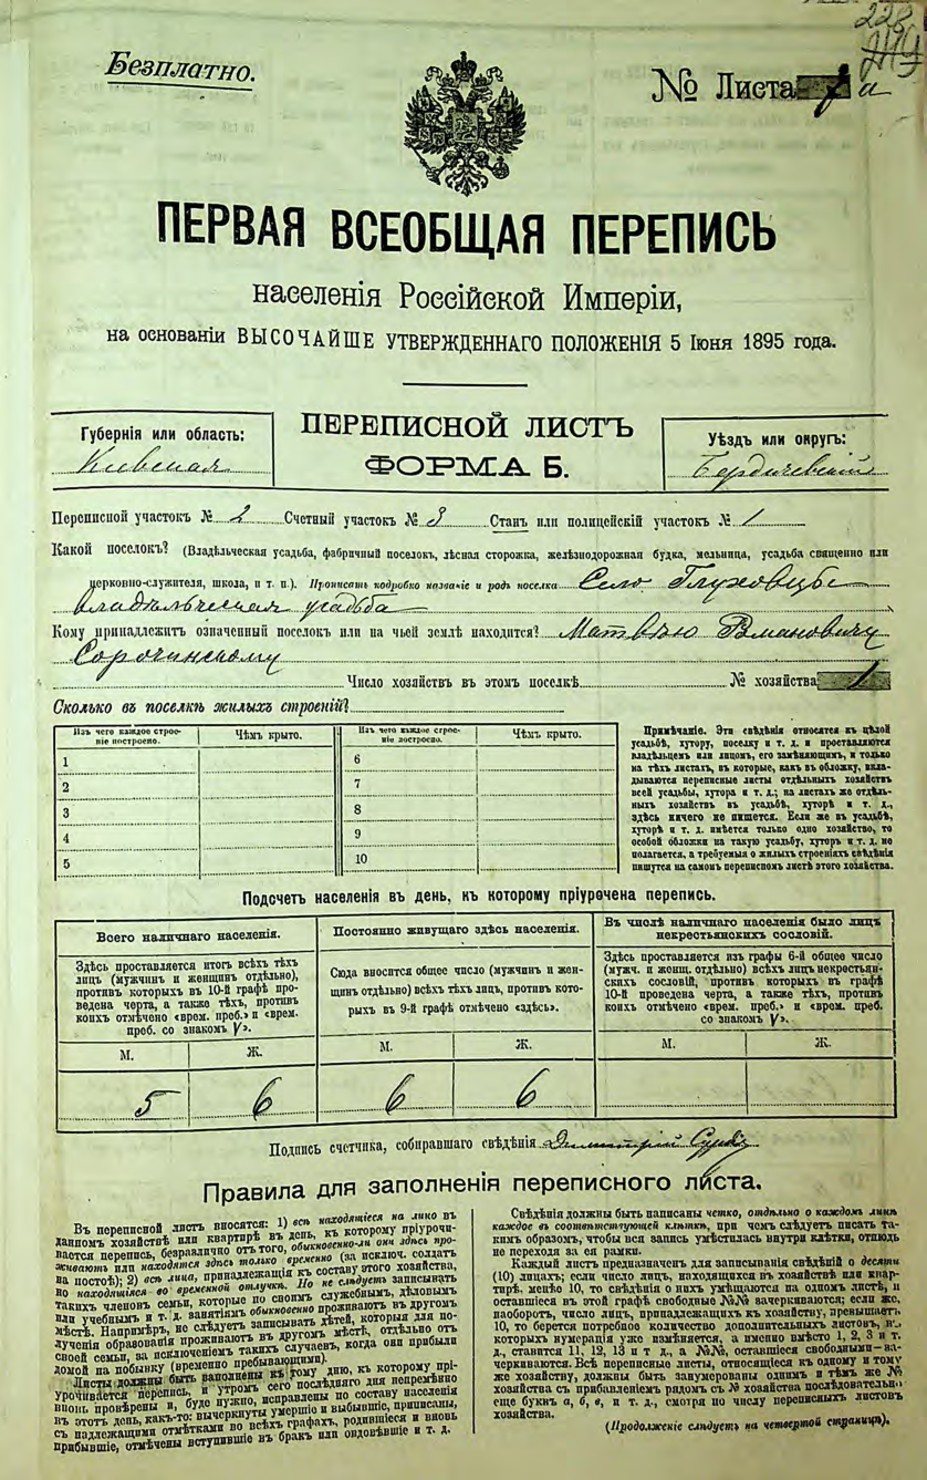 228
Безплатно.
№ Листа 1 а
ПЕРВАЯ ВСЕОБЩАЯ ПЕРЕПИСЬ
населенія Россійской Имперіи,
на основаніи ВЫСОЧАЙШЕ УТВЕРЖДЕННАГО ПОЛОЖЕНІЯ 5 Іюня 1895 года.
Губернія или область:
Кіевская
ПЕРЕПИСНОЙ ЛИСТЪ
ФОРМА Б.
Уѣздъ или округъ:
Бердичевскій
Переписной участокъ № 2 Счетный участокъ № 3 Станъ или полицейскій участокъ № 1
Какой поселокъ? (Владѣльческая усадьба, фабричный поселокъ, лѣсная сторожка, желѣзнодорожная будка, мельница, усадьба священно или
церковно-служителя, школа, и т. п.). Прописать подробно названіе и родъ поселка Село Глуховцы
владѣльческая усадьба
Кому принадлежитъ означенный поселокъ или на чьей землѣ находится? Матвѣю Романовичу
Сорочинскому
Число хозяйствъ въ этомъ поселкѣ № хозяйства 1
Сколько въ поселкѣ жилыхъ строеній?
Изъ чего каждое строе-
ніе построено.
Чѣмъ крыто.
Изъ чего каждое строе-
ніе построено.
Чѣмъ крыто.
1
2
3
4
5
6
7
8
9
10
Примѣчаніе. Эти свѣдѣнія относятся къ цѣлой
усадьбѣ, хутору, поселку и т. д. и проставляются
владѣльцемъ или лицомъ, его замѣняющимъ, и только
на тѣхъ листахъ, въ которые, какъ въ обложку, вкла-
дываются переписные листы отдѣльныхъ хозяйствъ
всей усадьбы, хутора и т. д.; на листахъ же отдѣль-
ныхъ хозяйствъ въ усадьбѣ, хуторѣ и т. д.,
здѣсь ничего не пишется. Если же въ усадьбѣ,
хуторѣ и т. д. имѣется только одно хозяйство, то
особой обложки на такую усадьбу, хуторъ и т. д. не
полагается, а требуемыя о жилыхъ строеніяхъ свѣдѣнія
пишутся на самомъ переписномъ листѣ этого хозяйства.
Подсчетъ населенія въ день, къ которому пріурочена перепись.
Всего наличнаго населенія.
Здѣсь проставляется итогъ всѣхъ тѣхъ
лицъ (мужчинъ и женщинъ отдѣльно),
противъ которыхъ въ 10-й графѣ про-
ведена черта, а также тѣхъ, противъ
коихъ отмѣчено «врем. преб.» и «врем.
преб. со знакомъ V».
М.
Ж.
5
6
Постоянно живущаго здѣсь населенія.
Сюда вносится общее число (мужчинъ и жен-
щинъ отдѣльно) всѣхъ тѣхъ лицъ, противъ кото-
рыхъ въ 9-й графѣ отмѣчено «здѣсь».
М.
Ж.
6
6
Въ числѣ наличнаго населенія было лицъ
некрестьянскихъ сословій.
Здѣсь проставляется изъ графы 6-й общее число
(мужч. и женщ. отдѣльно) всѣхъ лицъ некрестьян-
скихъ сословій, противъ которыхъ въ графѣ
10-й проведена черта, а также тѣхъ, противъ
коихъ отмѣчено «врем. преб.» и «врем. преб.
со знакомъ V».
М.
Ж.
Подпись счетчика, собиравшаго свѣдѣнія Димитрій
Правила для заполненія переписного листа.
Въ переписной листъ вносятся: 1) всѣ находящіеся на лицо въ
данномъ хозяйствѣ или квартирѣ въ день, къ которому пріурочи-
вается перепись, безразлично отъ того, обыкновенно-ли они здѣсь про-
живаютъ или находятся здѣсь только временно (за исключ. солдатъ
на постоѣ); 2) всѣ лица, принадлежащія къ составу этого хозяйства,
но находящіяся во временной отлучкѣ. Но не слѣдуетъ записывать
такихъ членовъ семьи, которые по своимъ служебнымъ, дѣловымъ
или учебнымъ и т. д. занятіямъ обыкновенно проживаютъ въ другомъ
мѣстѣ. Напримѣръ, не слѣдуетъ записывать дѣтей, которыя для по-
лученія образованія проживаютъ въ другомъ мѣстѣ, отдѣльно отъ
своей семьи, за исключеніемъ такихъ случаевъ, когда они прибыли
домой на побывку (временно пребывающими).
Листы должны быть заполнены къ тому дню, къ которому прі-
урочивается перепись, и утромъ сего послѣдняго дня непремѣнно
вновь провѣрены и, буде нужно, исправлены по составу населенія
въ этотъ день, какъ-то: вычеркнуты умершіе и выбывшіе, приписаны,
съ надлежащими отмѣтками во всѣхъ графахъ, родившіеся и вновь
прибывшіе, отмѣчены вступившіе въ бракъ или овдовѣвшіе и т. д.
Свѣдѣнія должны быть написаны четко, отдѣльно о каждомъ лицѣ
каждое въ соотвѣтствующей клѣткѣ, при чемъ слѣдуетъ писать та-
кимъ образомъ, чтобы вся запись умѣстилась внутри клѣтки, отнюдь
не переходя за ея рамки.
Каждый листъ предназначенъ для записыванія свѣдѣній о десяти
(10) лицахъ; если число лицъ, находящихся въ хозяйствѣ или квар-
тирѣ, менѣе 10, то свѣдѣнія о нихъ умѣщаются на одномъ листѣ, и
оставшіеся въ этой графѣ свободные №№ вачеркиваются; если же,
наоборотъ, число лицъ, принадлежащихъ къ хозяйству, превышаетъ
10, то берется потребное количество дополнительныхъ листовъ, въ
которыхъ нумерація уже измѣняется, а именно вмѣсто 1, 2, 3 и т.
д., ставится 11, 12, 13 и т д., а №№, оставшіеся свободными—за-
черкиваются. Всѣ переписные листы, относящіеся къ одному и тому
же хозяйству, должны быть занумерованы однимъ и тѣмъ же №
хозяйства съ прибавленіемъ рядомъ съ № хозяйства послѣдовательно
еще буквъ а, б, в, и т. д., смотря по числу переписныхъ листовъ
хозяйства.
(Продолженіе слѣдуетъ на четвертой страницѣ).